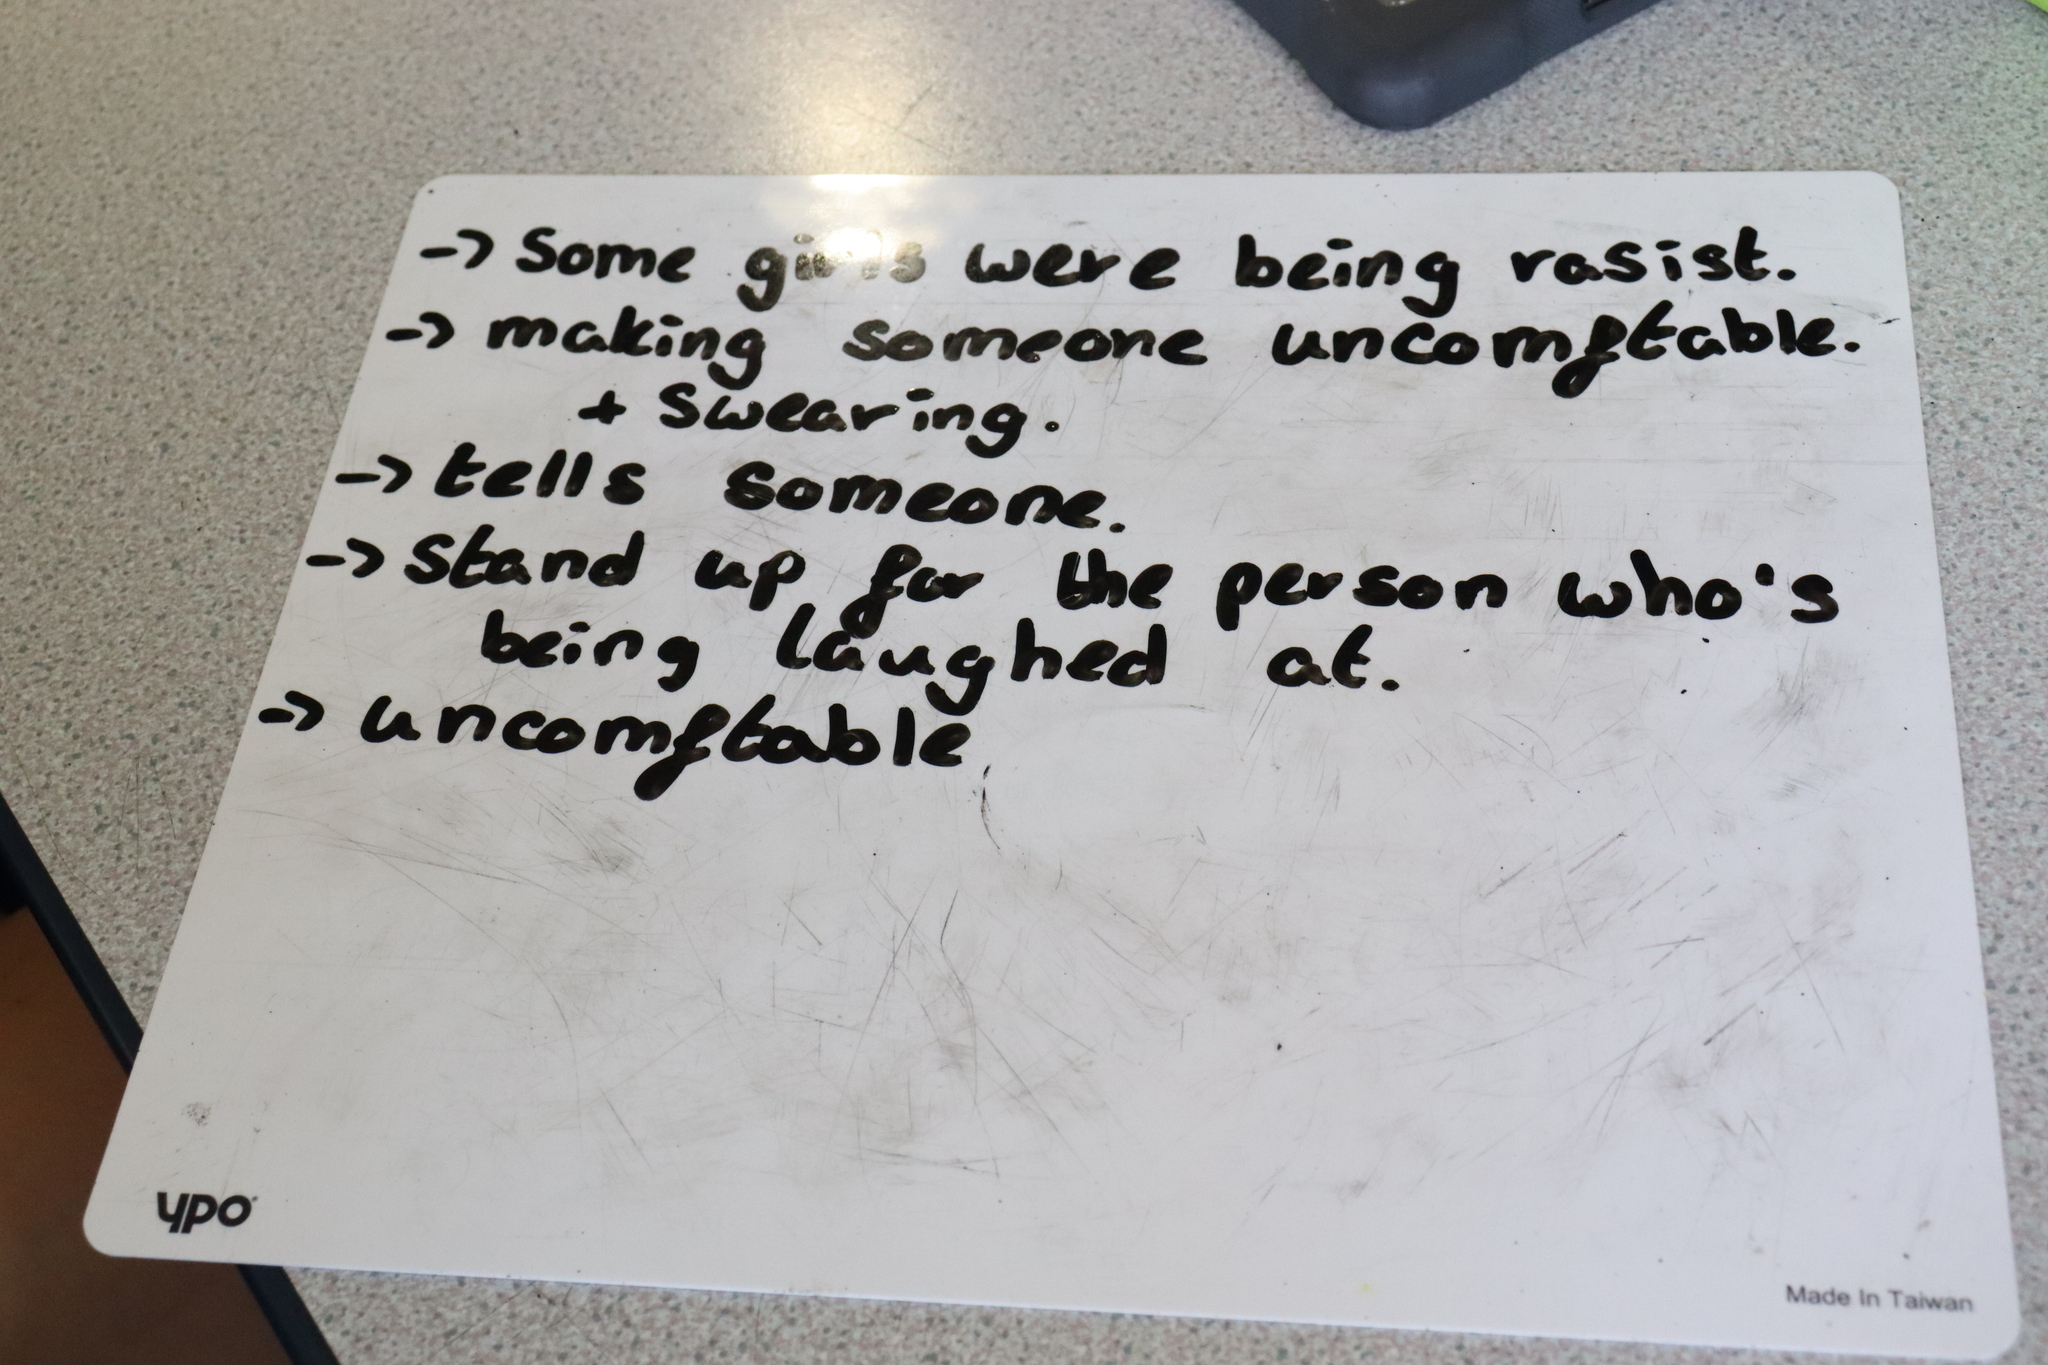 -> Some girls were being rasist.
-> making someone uncomftable.
+ swearing.
-> tells someone.
-> Stand up for the person who's
being laughed at.
-> uncomftable
ypo
Made In Taiwan